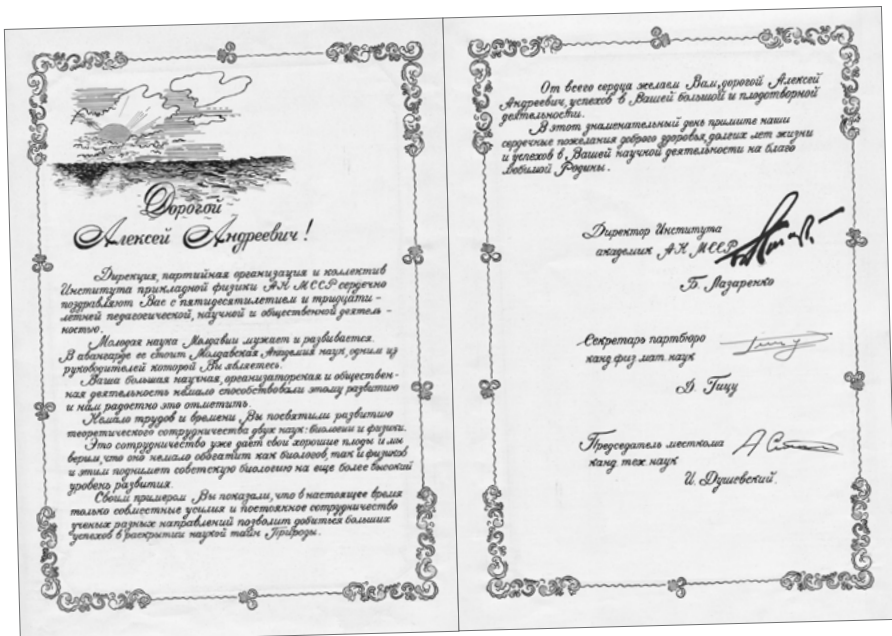 Дорогой
Алексей Андреевич!
Дирекция, партийная организация и коллектив
Института прикладной физики АН МССР сердечно
поздравляют Вас с пятидесятилетием и тридцати-
летней педагогической, научной и общественной деятель-
ностью.
Молодая наука Молдавии мужает и развивается.
В авангарде ее стоит Молдавская Академия наук, одним из
руководителей которой Вы являетесь.
Ваша большая научная, организаторская и обществен-
ная деятельность немало способствовали этому развитию
и нам радостно это отметить.
Немало трудов и времени Вы посвятили развитию
теоретического сотрудничества двух наук: биологии и физики.
Это сотрудничество уже дает свои хорошие плоды и мы
верим, что оно немало обогатит как биологов, так и физиков
и этим поднимет советскую биологию на еще более высокий
уровень развития.
Своим примером Вы показали, что в настоящее время
только совместные усилия и постоянное сотрудничество
ученых разных направлений позволит добиться больших
успехов в раскрытии наукой тайн Природы.
От всего сердца желаем Вам, дорогой Алексей
Андреевич, успехов в Вашей большой и плодотворной
деятельности.
В этот знаменательный день примите наши
сердечные пожелания доброго здоровья, долгих лет жизни
и успехов в Вашей научной деятельности на благо
любимой Родины.
Директор Института
академик АН МССР
Б. Лазаренко
Секретарь партбюро
канд физ мат наук
Д. Гицу
Председатель месткома
канд. тех наук
И. Душевский.